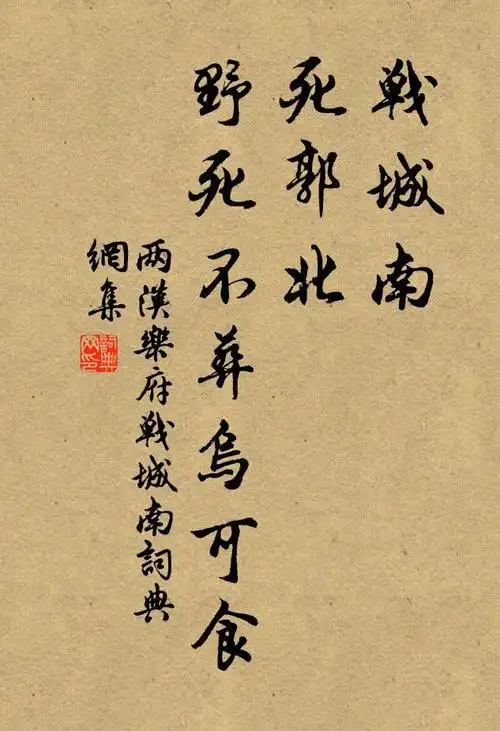 戰城南
死郭北
野死不葬烏可食
两漢樂府戰城南詞典
網集
詞典
网印